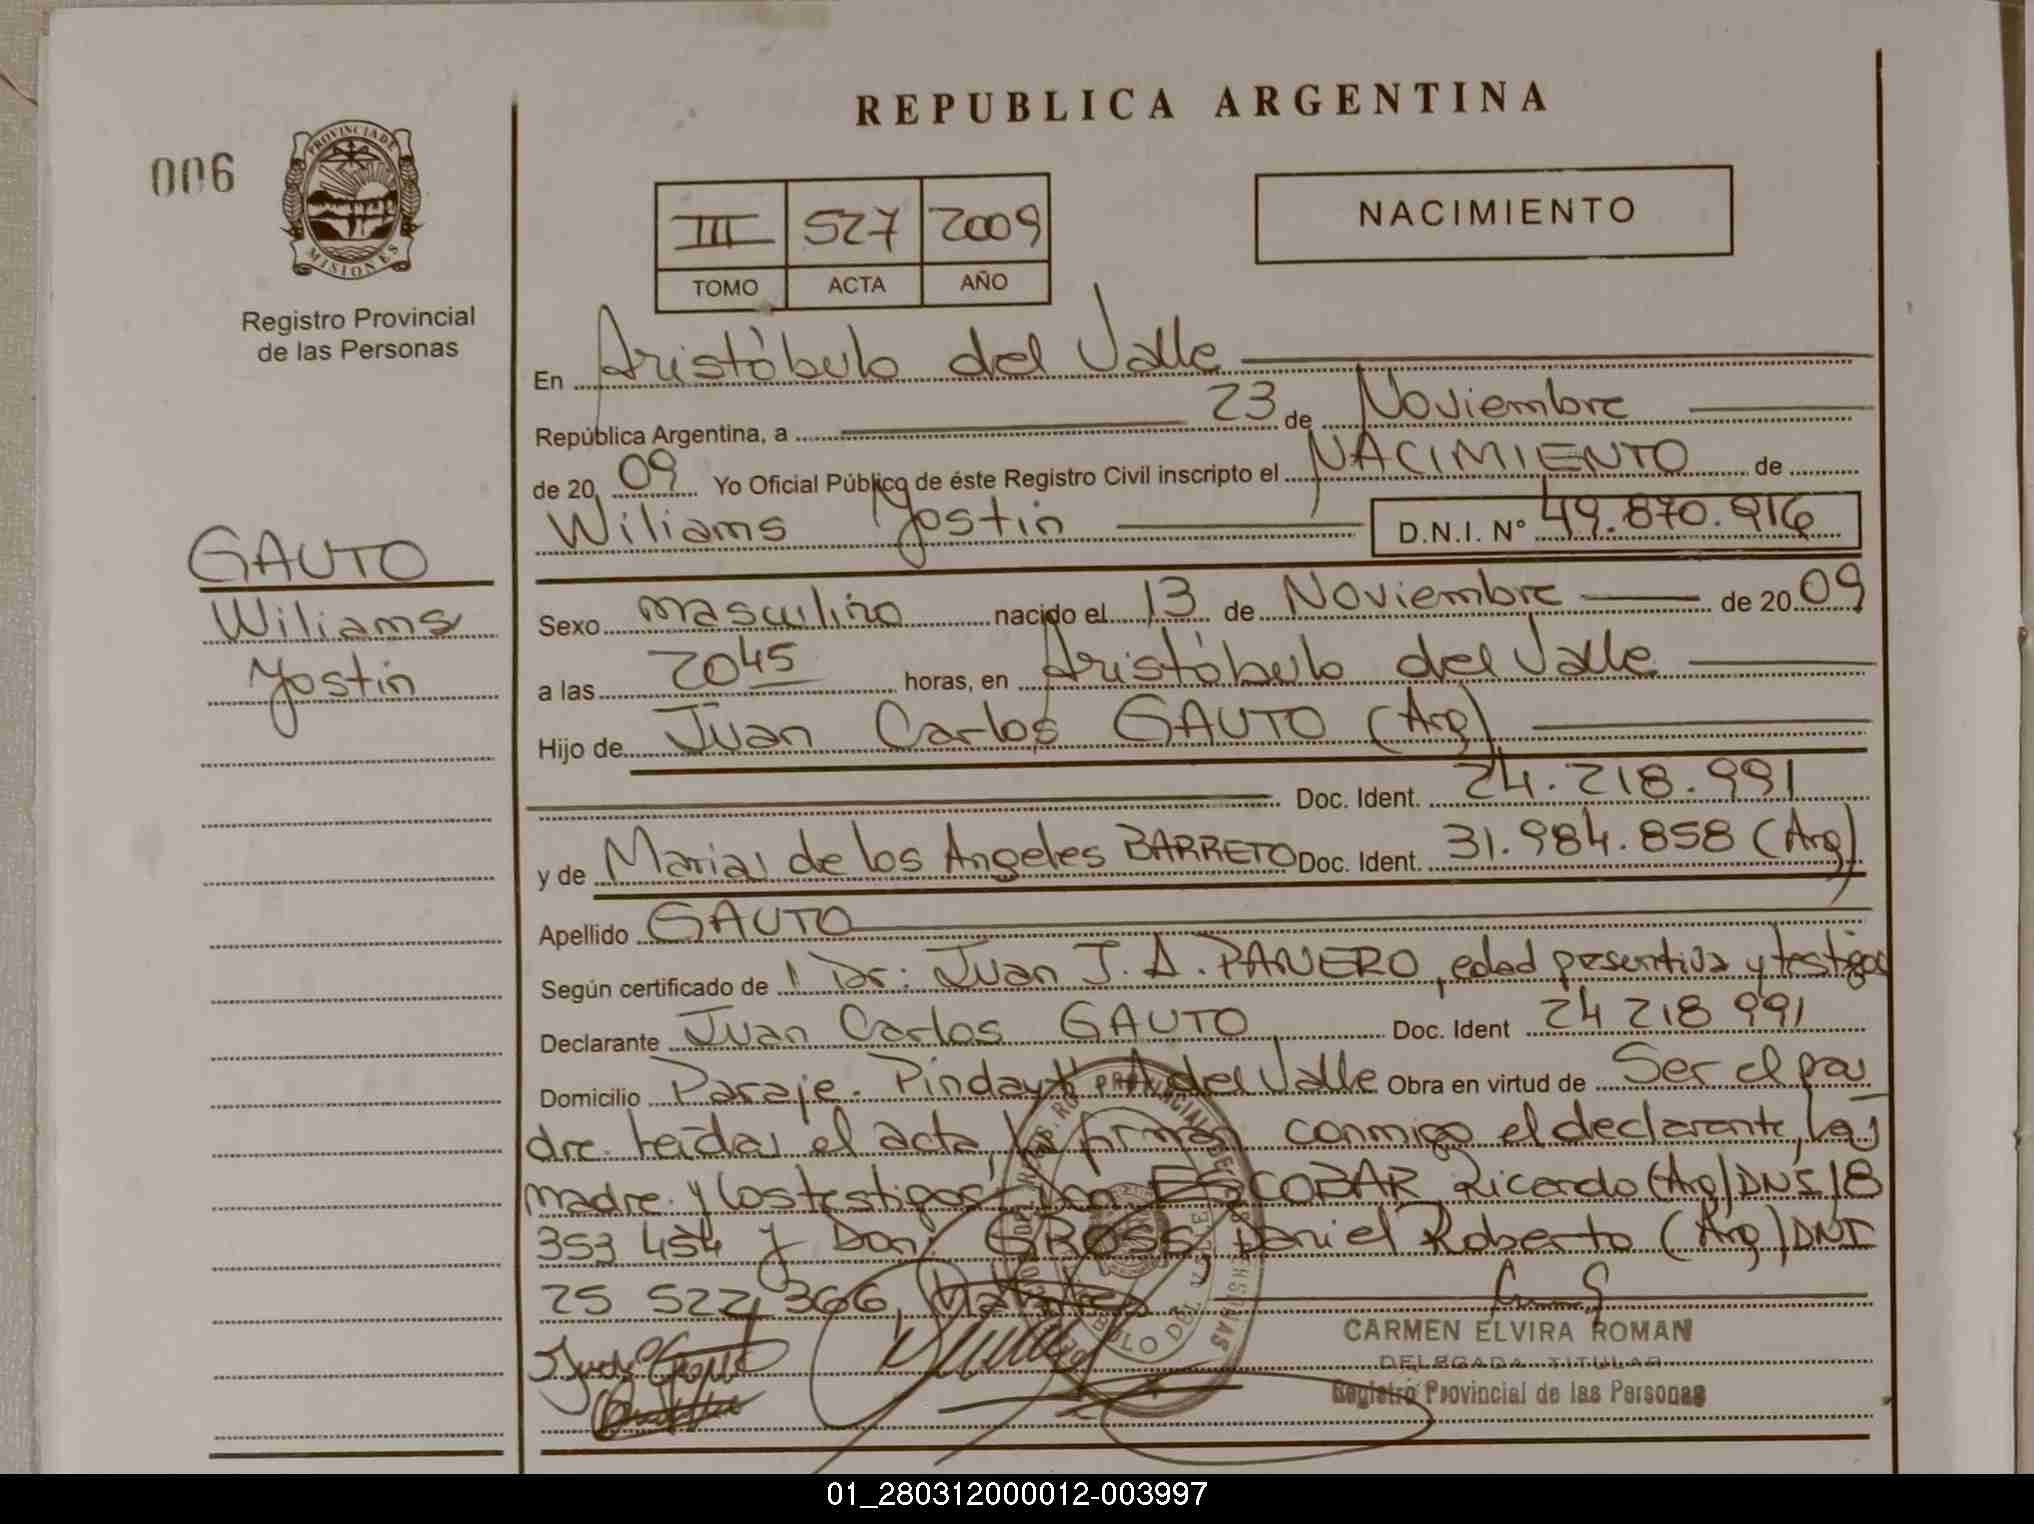 REPUBLICA ARGENTINA
006
PROVINCIA DE
MISIONES
Registro Provincial
de las Personas
III 527 2009
TOMO ACTA AÑO
NACIMIENTO
En Aristóbulo del Valle
República Argentina, a 23 de Noviembre
de 20 09 Yo Oficial Público de éste Registro Civil inscripto el NACIMIENTO de
Wiliams Yostin D.N.I. Nº 49.870.916
GAUTO
Wiliams
Yostin
Sexo masculino nacido el 13 de Noviembre de 20 09
a las 20 45 horas, en Aristóbulo del Valle
Hijo de Juan Carlos GAUTO (Arg)
Doc. Ident. 24.218.991
y de Maria de los Angeles BARRETO Doc. Ident. 31.984.858 (Arg)
Apellido GAUTO
Según certificado de Dr. Juan J. A. PANERO, edad presuntiva y testigos
Declarante Juan Carlos GAUTO Doc. Ident 24 218 991
Domicilio Paraje. Pindayti A del Valle Obra en virtud de Ser el pa
dre. Leida el acta, la firman conmigo el declarante, la
madre y los testigos Don ESCOBAR, Ricardo (Arg) DNI 18
353 454 y Don GROSS, Daniel Roberto (Arg) DNI
25 522 366,
CARMEN ELVIRA ROMAN
DELEGADA TITULAR
Registro Provincial de las Personas
01_280312000012-003997